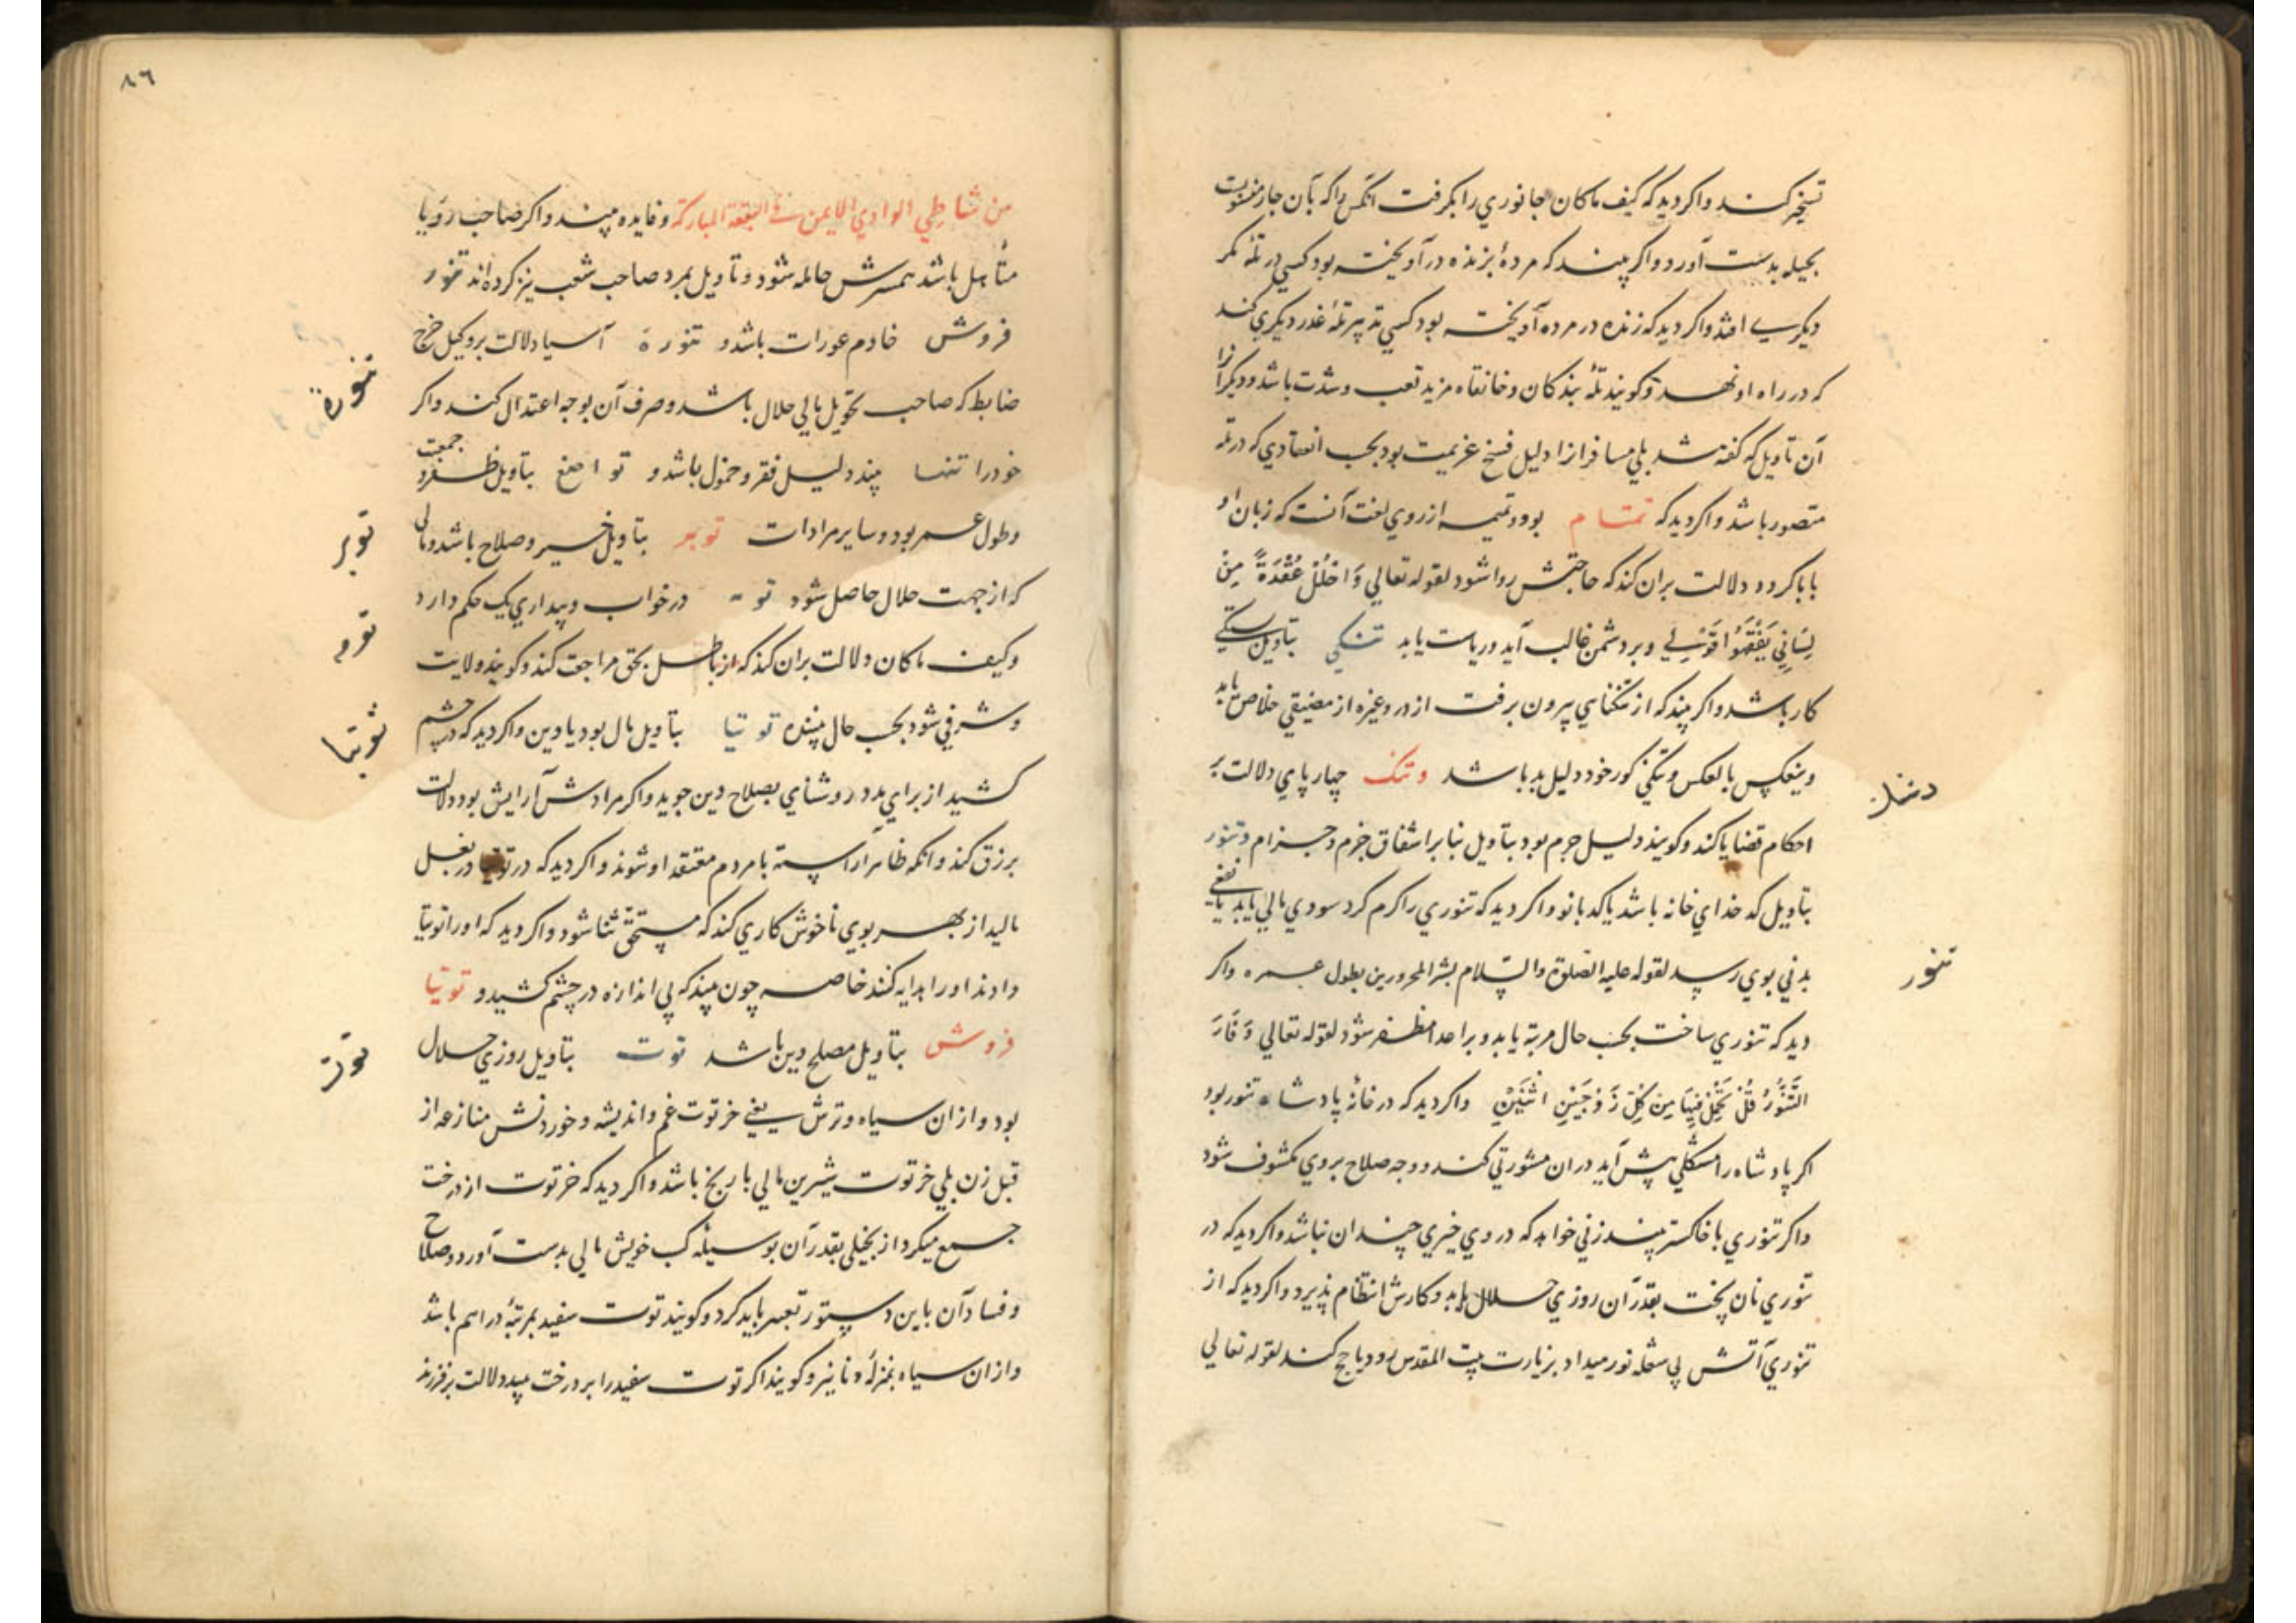 تسخیر کند واکر دید که کیف ماکان جانوري را بکرفت انکس را که بآن جانور منسوبست
بحیله بدست آورد واکر بیند که مردهٔ بزنده درآویخته بود کسي در تلهٔ مکر
دیکرے افتد واکر دید که زنده در مرده آویخته بود کسي تدبیر تلهٔ غدر دیکري کند
که در راه او نهد وکویند تلهٔ بندکان وخانقاه مزید تعب وشدت باشد ودیکرانرا
آن تاویل که کفته شد بلي مسافرانرا دلیل فسخ عزیمت بود بحسب انعقادي که در تله
متصور باشد واکر دید که تمتام بود وتمیمه از روي لغت آنست که زبان او
با باکردد دلالت بران کند که حاجتش روا شود لقوله تعالي وَاحْلُلْ عُقْدَةً مِنْ
لِسَانِي يَفْقَهُوا قَوْلِي وبر دشمن غالب آید وریاست یابد تنکي بتاویل بستکي
کار باشد واکر بیند که از تنکنایي بیرون برفت از درد وغیره از مضیقي خلاص یابد
وینعکس بالعکس وتنکي کور خود دلیل بد باشد وتنک چهارپاي دلالت بر
احکام قضایا کند وکویند دلیل جرم بود بتاویل بنابر اشقاق جزم وجزام وتنور
بتاویل کدخداي خانه باشد یاکدبانو واکر دید که تنوري را کرم کرد سودي مالي یابد یا نفعي
بدني بوي رسد لقوله علیه الصلوة والسلام بشر المحرورین بطول عمره واکر
دید که تنوري ساخت بحسب حال مرتبه یابد وبر اعدا مظفر شود لقوله تعالي وَفَارَ
التَّنُّورُ قُلْنَا احْمِلْ فِيهَا مِنْ كُلٍّ زَوْجَيْنِ اثْنَيْنِ واکر دید که در خانهٔ پادشاه تنور بود
اکر پادشاه را مشکلي پیش آید دران مشورتي کند ووجه صلاح بروي مکشوف شود
واکر تنوري با خاکستر بیند زني خواهد که در وي خیري چندان نباشد واکر دید که در
تنوري نان پخت بقدر آن روزي حلال یابد وکارش انتظام پذیرد واکر دید که از
تنوري آتش بي شعله نور میداد بزیارت بیت المقدس رود یا حج کند لقوله تعالي
تنور
٨٦
من شاطئ الوادي الایمن في البقعة المبارکة وفایده بیند واکر صاحب رؤیا
متأهل باشد همسرش حامله شود وتاویل بمرد صاحب شعب نیز کرده‌اند تنور
فروش خادم عورات باشد و تنورة آسیا دلالت بر وکیل خرج
ضابط که صاحب تحویل مالي حلال باشد وصرف آن بوجه اعتدال کند واکر
خود را تنها بیند دلیل فقر وخمول باشد و تواضع بتاویل ظفر وجمعیت
وطول عمر بود وسایر مرادات توبر بتاویل خیر وصلاح باشد ومالي
که از جهت حلال حاصل شود توبه درخواب وبیداري یک حکم دارد
وکیف ماکان دلالت بران کند که از باطل بحق مراجعت کند وکویند ولایت
وشرفي شود بحسب حال بیننده توتیا بتاویل مال بود یا دین واکر دید که در چشم
کشید از براي مدد روشنایي بصلاح دین جوید واکر مرادش آرایش بود دلالت
بر زرق کند وآنکه ظاهر آراسته با مردم معتقد او شوند واکر دید که در توتیا در بغل
مالید از بهر بوي ناخوش کاري کند که مستحق ثنا شود واکر دید که اورا توتیا
دادند اورا هدایه کنند خاصه چون بیند که بي اندازه در چشم کشید و توتیا
فروش بتاویل مصلح دین باشد توت بتاویل روزي حلال
بود وازان سیاه وترش یعني خرتوت غم واندیشه وخوردنش منازعه از
قبل زن بلي خرتوت شیرین مالي با رنج باشد واکر دید که خرتوت از درخت
جمع میکرد از بخیلي بقدر آن بوسیلهٔ کسب خویش مالي بدست آورد وصلاح
وفساد آن باین دستور تعبیر باید کرد وکویند توت سفید بمرتبهٔ دراهم باشد
وازان سیاه بمنزلهٔ دنانیر وکویند اکر توت سفید را بر درخت بیند دلالت بر فرزند
تنورة
توبر
توبه
توتیا
توت